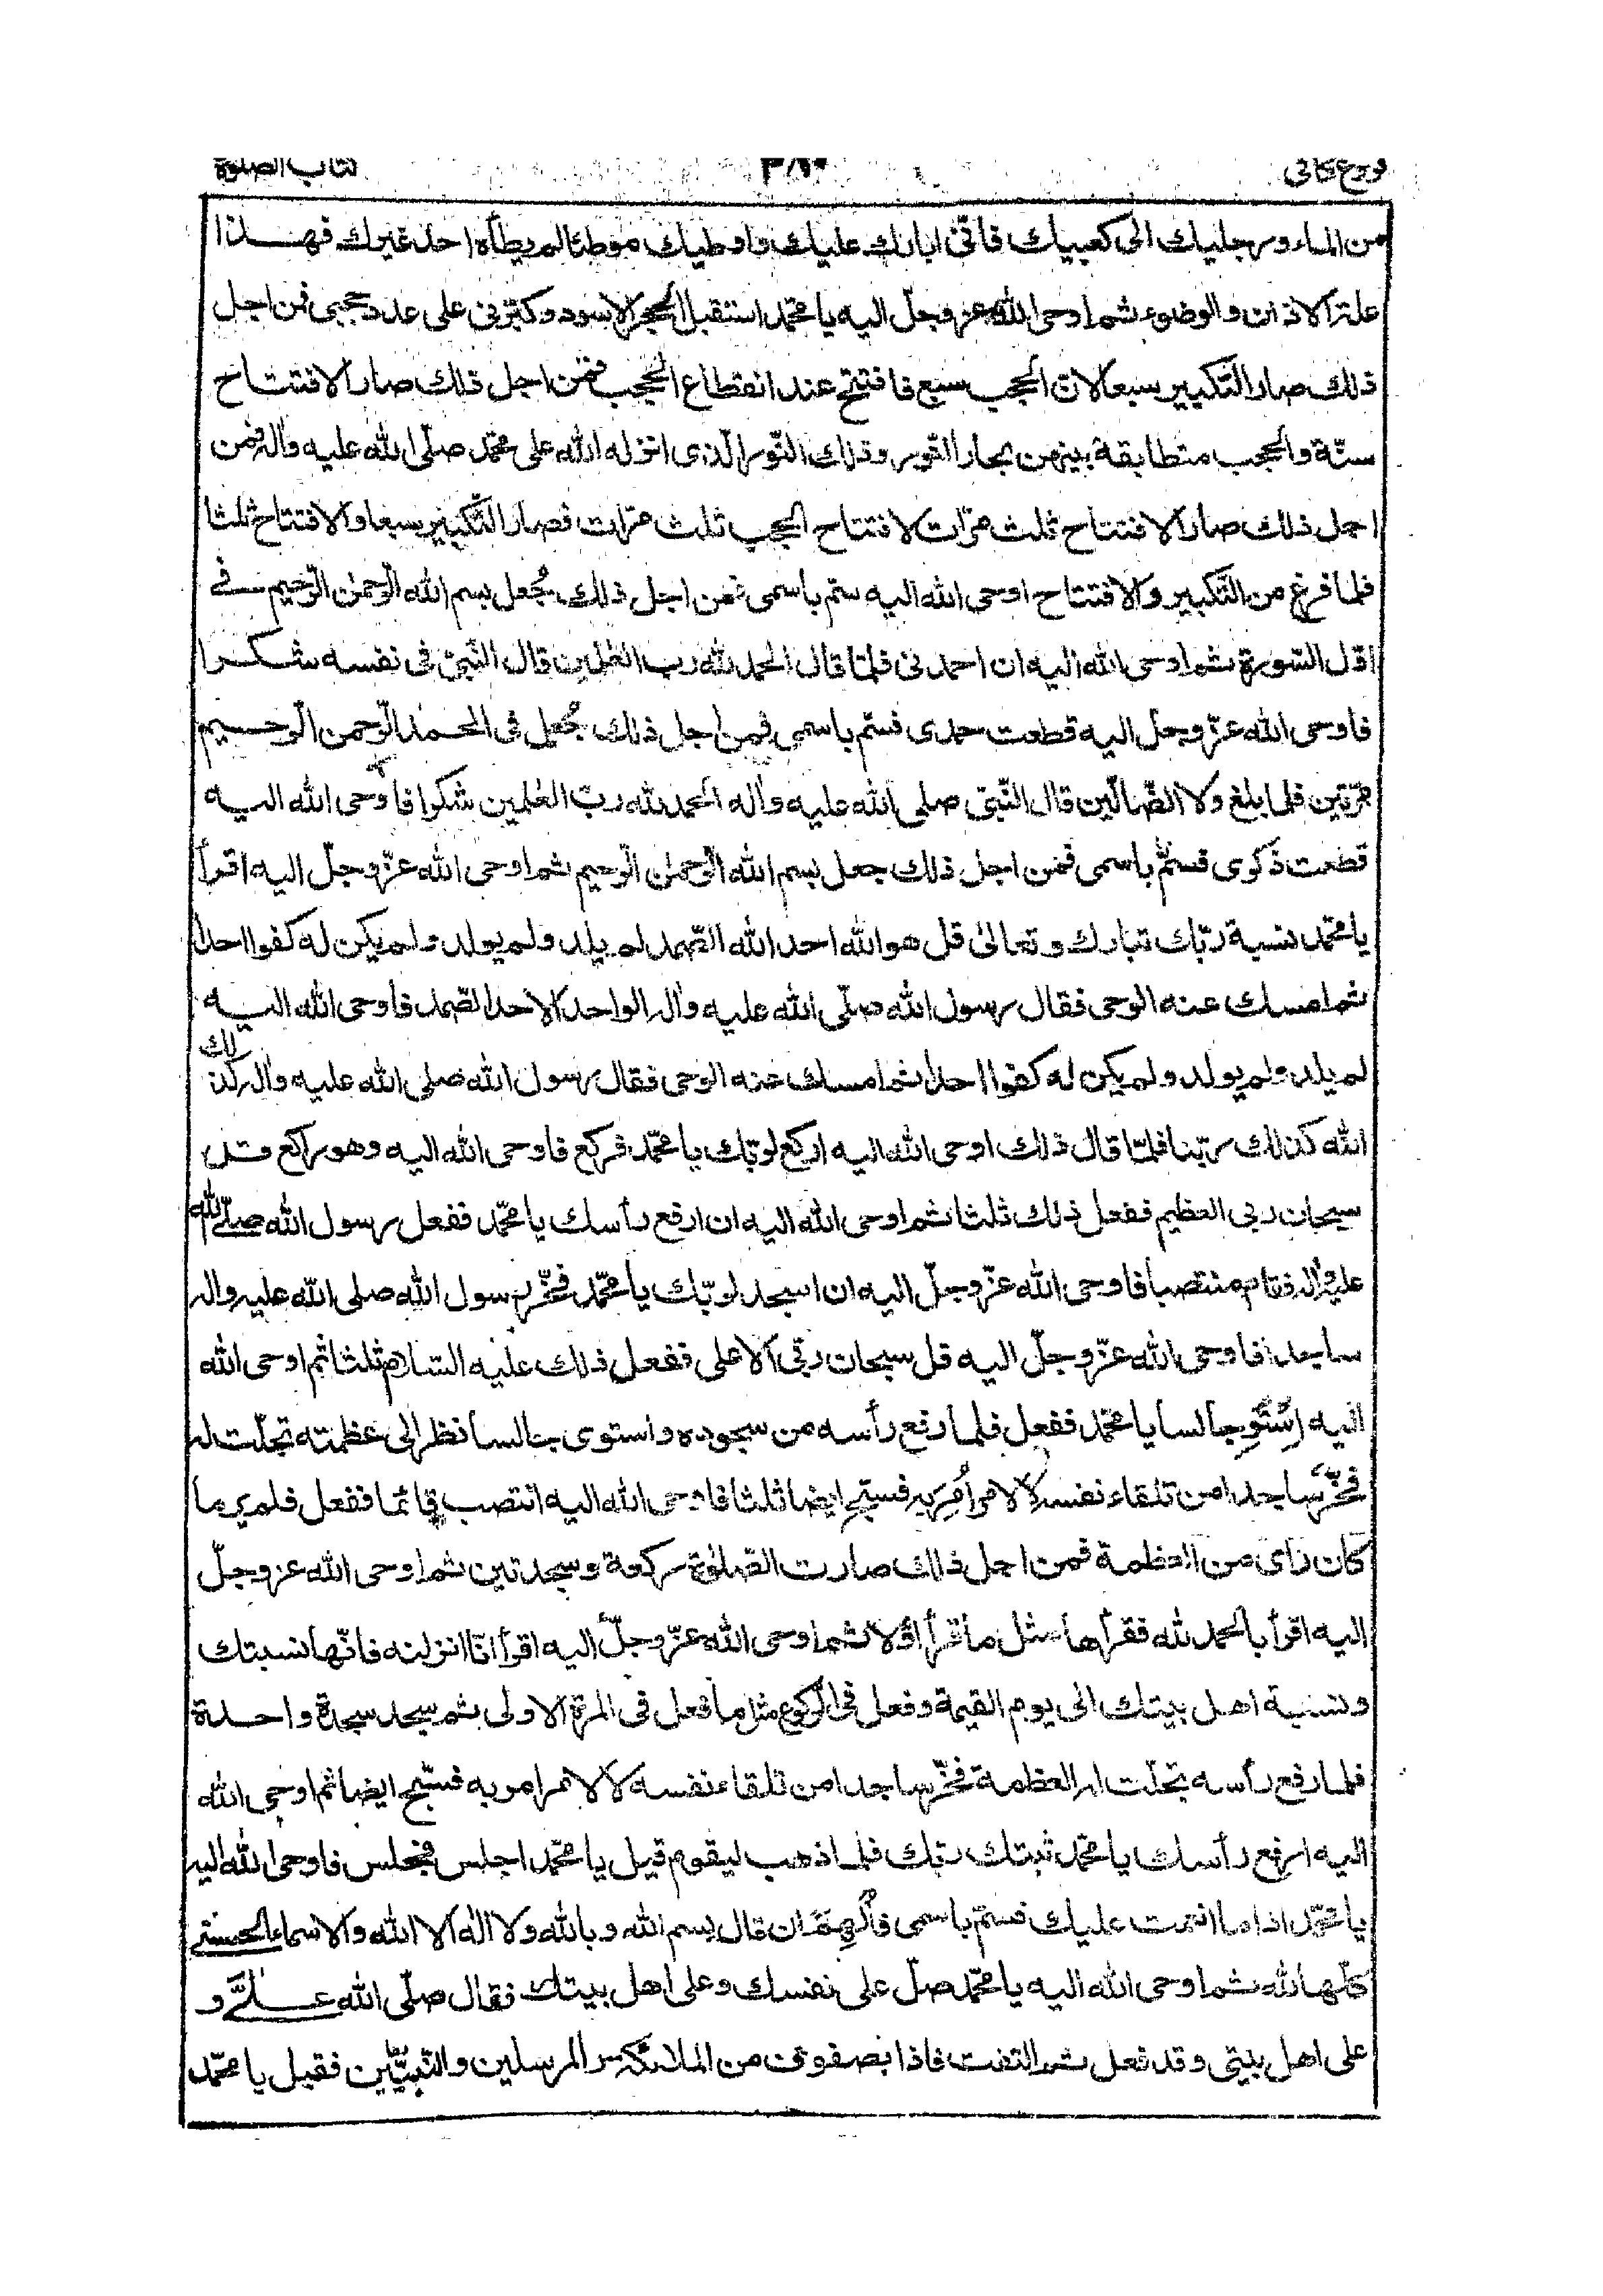 فروع كافى كتاب الصلوة
من الماء ورجليك الى كعبيك فانّى ابارك عليك واوطيك موطئا لم يطأه احد غيرك فهذا
علة الاذان والوضوء ثم اوحى الله عز وجلّ اليه يا محمّد استقبل الحجر الاسود وكبّرنى على عدد حجبى فمن اجل
ذلك صار التّكبير سبعا لانّ الحجب سبع فافتتح عند انقطاع الحجب فمن اجل ذلك صار الافتتاح
سنّة والحجب متطابقة بينهن بحار النّور وذلك النّور الّذى انزله الله على محمّد صلّى الله عليه واله فمن
اجل ذلك صار الافتتاح ثلث مرّات لافتتاح الحجب ثلث مرّات فصار التّكبير سبعا والافتتاح ثلثا
فلما فرغ من التّكبير والافتتاح اوحى الله اليه سمّ باسمى فمن اجل ذلك جُعل بسم الله الرّحمٰن الرّحيم فى
اوّل السّورة ثم اوحى الله اليه ان احمدنى فلمّا قال الحمد لله رب العٰلمين قال النّبىّ فى نفسه شكرا
فاوحى الله عزّ وجلّ اليه قطعت حمدى فسمّ باسمى فمن اجل ذلك جُعل فى الحمد الرّحمن الرّحيم
مرّتين فلما بلغ ولا الضّالّين قال النّبىّ صلى الله عليه واٰله الحمد لله ربّ العٰلمين شكرا فاوحى الله اليه
قطعت ذكرى فسمّ باسمى فمن اجل ذلك جعل بسم الله الرّحمٰن الرّحيم ثم اوحى الله عزّ وجلّ اليه اقرأ
يا محمّد نسبة ربّك تبارك وتعالىٰ قل هو الله احد الله الصّمد لم يلد ولم يولد ولم يكن له كفوا احد
ثم امسك عنه الوحى فقال رسول الله صلّى الله عليه واٰله الواحد الاحد الصّمد فاوحى الله اليه
لم يلد ولم يولد ولم يكن له كفوا احد ثم امسك عنه الوحى فقال رسول الله صلى الله عليه واٰله كذلك
الله كذلك ربّنا فلمّا قال ذلك اوحى الله اليه اركع لربّك يا محمّد فركع فاوحى الله اليه وهو راكع قل
سبحان ربى العظيم ففعل ذلك ثلثا ثم اوحى الله اليه ان ارفع رأسك يا محمّد ففعل رسول الله صلّى الله
عليه واٰله فقام منتصبا فاوحى الله عزّ وجلّ اليه ان اسجد لربّك يا محمّد فخرّ رسول الله صلى الله عليه واله
ساجدا فاوحى الله عزّ وجلّ اليه قل سبحان ربّى الاعلى ففعل ذلك عليه السّلام ثلثا ثم اوحى الله
اليه اِسْتَوِ جالسا يا محمّد ففعل فلما رفع رأسه من سجوده واستوى جالسا نظر الى عظمته تجلّت له
فخرّ ساجدا من تلقاء نفسه لا لامر اُمِر به فسبّح ايضا ثلثا فاوحى الله اليه انتصب قائما ففعل فلم ير ما
كان رأى من العظمة فمن اجل ذلك صارت الصّلوٰة ركعة وسجدتين ثم اوحى الله عز وجلّ
اليه اقرأ بالحمد لله فقرأها مثل ما قرأ اوّلا ثم اوحى الله عزّ وجلّ اليه اقرأ انّا انزلنه فانّها نسبتك
ونسبة اهل بيتك الى يوم القيمة وفعل فى الرّكوع مثل ما فعل فى المرّة الاولى ثم سجد سجدة واحدة
فلما رفع رأسه تجلّت له العظمة فخرّ ساجدا من تلقاء نفسه لا لامر امر به فسبّح ايضا ثم اوحى الله
اليه ارفع رأسك يا محمّد ثبتك ربّك فلما ذهب ليقوم قيل يا محمّد اجلس فجلس فاوحى الله اليه
يا محمّد اذا ما انعمت عليك فسمّ باسمى فاُلهِمَ ان قال بسم الله وبالله ولا اله الا الله والاسماء الحسنى
كلّها لله ثم اوحى الله اليه يا محمّد صلّ على نفسك وعلى اهل بيتك فقال صلّى الله علىَّ و
على اهل بيتى وقد فعل ثم التفت فاذا بصفوف من الملائكة والمرسلين والنّبيّين فقيل يا محمّد